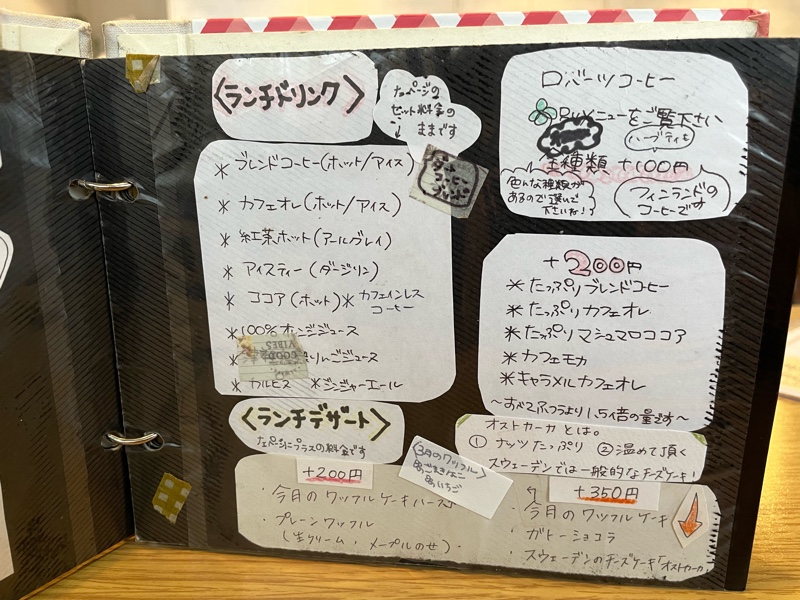 〈ランチドリンク〉
左ページの
セット料金の
ままです
＊ブレンドコーヒー(ホット/アイス)
＊カフェオレ(ホット/アイス)
＊紅茶ホット(アールグレイ)
＊アイスティー(ダージリン)
＊ココア(ホット)＊カフェインレスコーヒー
＊100%オレンジジュース
りんごジュース
＊カルピス ＊ジンジャーエール
GOOD VIBES
ロバーツコーヒー
メニューをご覧下さい
ハーブティも
全種類 +100円
色んな種類が
あるので選んで
下さいね!
フィンランドの
コーヒーです
+200円
＊たっぷりブレンドコーヒー
＊たっぷりカフェオレ
＊たっぷりマシュマロココア
＊カフェモカ
＊キャラメルカフェオレ
〜すべてふつうより1.5倍の量です〜
〈ランチデザート〉
左ページにプラスの料金です
+200円
・今月のワッフルケーキハーフ
・プレーンワッフル
(生クリーム・メープルのせ)
〈3月のワッフル〉
いちご
オストカーカとは。
①ナッツたっぷり ②温めて頂く
スウェーデンでは一般的なチーズケーキ!
+350円
・今月のワッフルケーキ
・ガトーショコラ
・スウェーデンのチーズケーキ「オストカーカ」